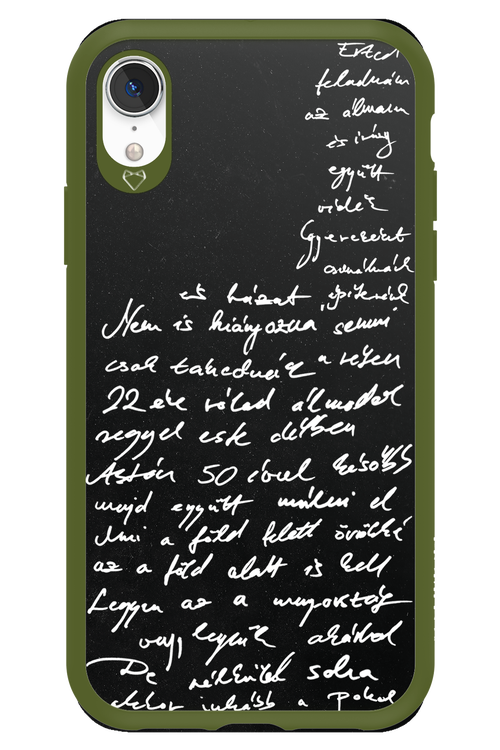 Érted
feladnám
az álmaim
és irány
együtt
vidék
Gyereket
csinálnánk
és házat építenénk
Nem is hiányozna semmi
csak a
22 éve rólad álmodok
reggel este délben
Aztán 50 évvel később
majd együtt múlni el
Ami a föld felett örökké
az a föld alatt is kell
Legyen az a mennyország
vagy legyünk akárhol
De nélküled soha
akkor inkább a Pokol